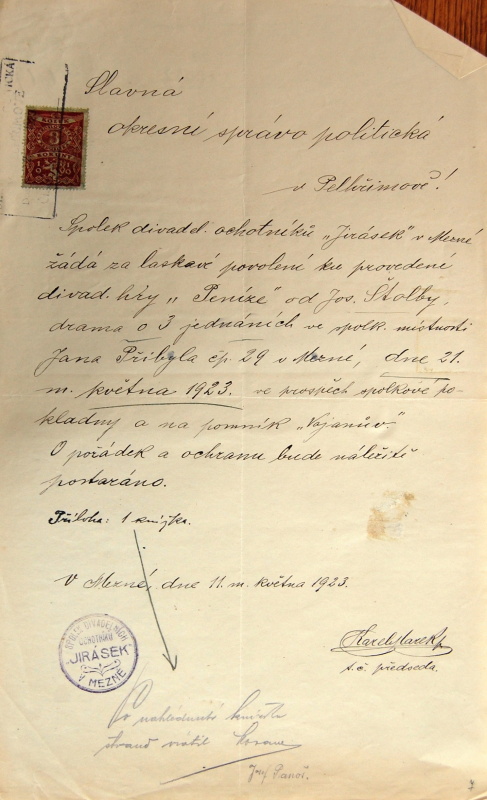 Slavná
okresní správo politická
v Pelhřimově!
Spolek divadel. ochotníků „Jirásek“ v Mezné
žádá za laskavé povolení ku provedení
divad. hry „Peníze“ od Jos. Štolby,
drama o 3 jednáních ve spolk. místnosti
Jana Přibyla čp. 29 v Mezné, dne 21.
m. května 1923. ve prospěch spolkové po-
kladny a na pomník „Vojanův.“
O pořádek a ochranu bude náležitě
postaráno.
Příloha: 1 knížka.
V Mezné, dne 11. m. května 1923.
Karel Marek
t.č. předseda.
SPOLEK DIVADELNÍCH
OCHOTNÍKŮ
"JIRÁSEK"
V MEZNÉ
Po nahlédnutí
vrátil
Josef Panoš.